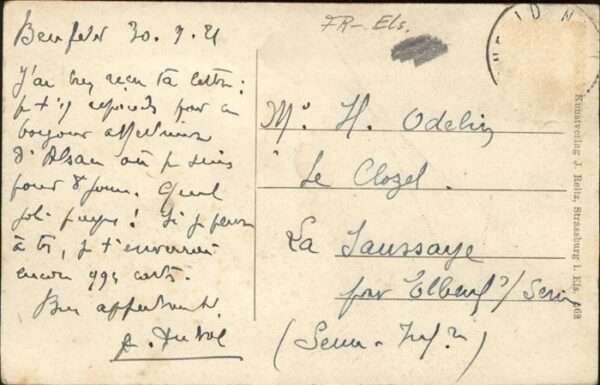 FR-Els.
Benfeld 30.9.21
J'ai bien reçu ta lettre :
je t'y réponds par un
bonjour affectueux
d'Alsace où je suis
pour 8 jours. Quel
joli pays ! Si je pense
à toi, je t'enverrai
encore qqs cartes.
Bien affectueust.
Duval
Mr. H. Odelin
Le Clozel.
La Saussaye
par Elbeuf s/ Seine
(Seine-Infre)
Kunstverlag J. Reitz, Strassburg i. Els.